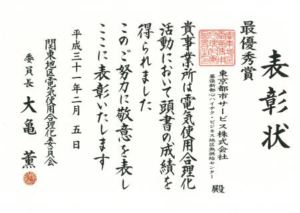 表彰状
最優秀賞
東京都市サービス株式会社
幕張新都心ハイテク・ビジネス地区熱供給センター 殿
貴事業所は電気使用合理化
活動において頭書の成績を
得られました
このご努力に敬意を表し
ここに表彰いたします
平成三十一年二月五日
関東地区電気使用合理化委員会
委員長 大亀 薫